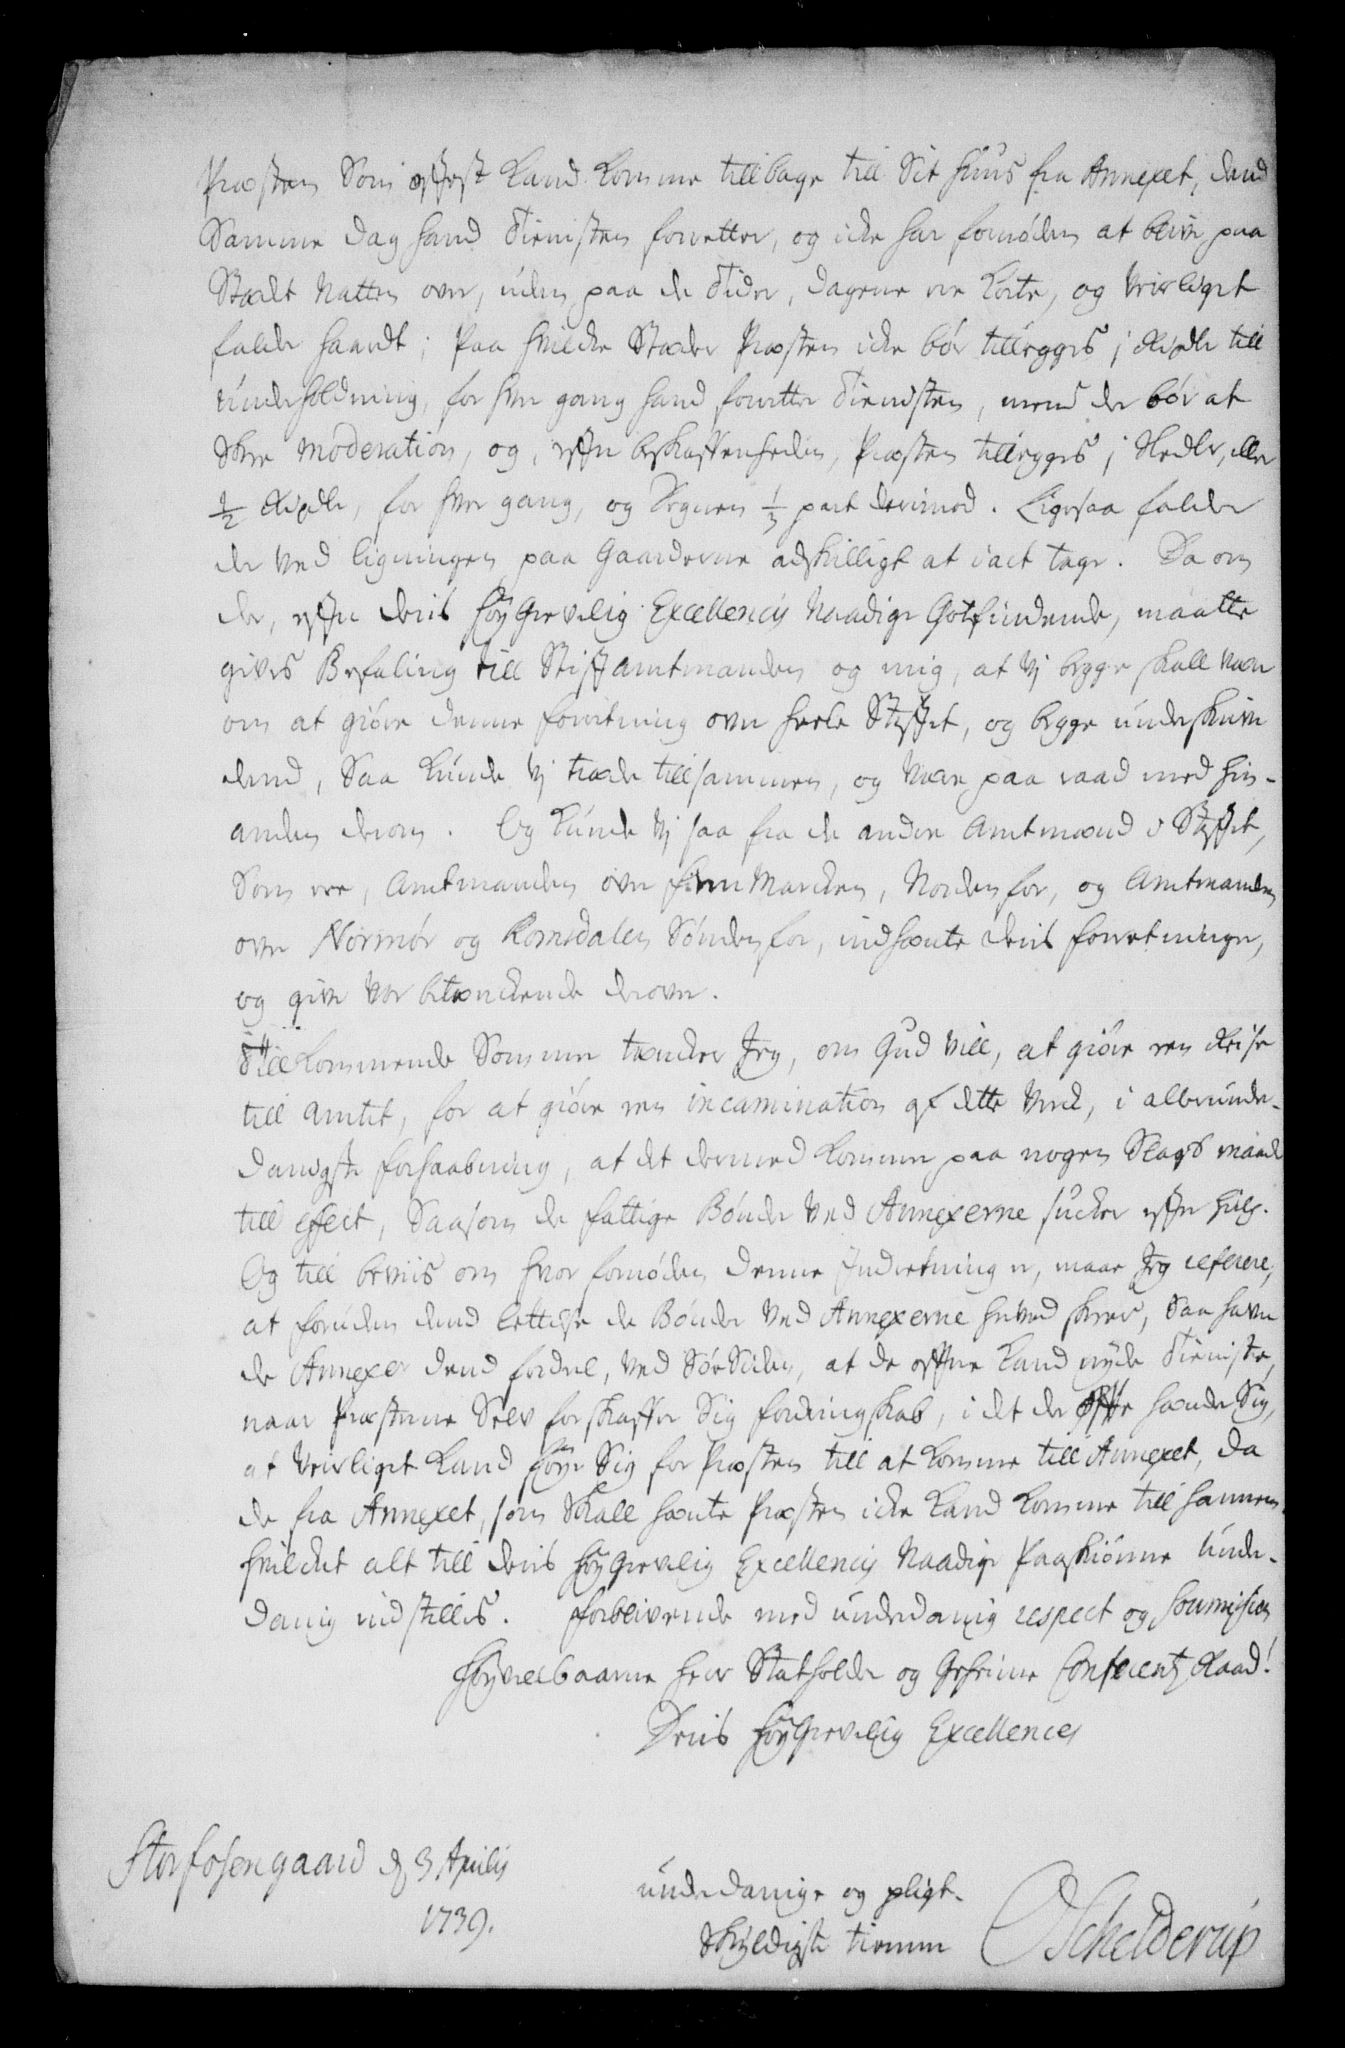 Præsten Som oftest Kand Komme tilbage till Sit Huus fra Annexet, dend
Samme dag hand Tienisten forretter, og icke har fornøden at blive paa
Stædt Natten over, uden paa de Tider, dagene ere Korte, og Veirliget
falder haardt; Paa hvilcke Stæder Præsten icke bør tillegges 1 Rixdr till
Underholdning, for hver gang hand forretter Tienisten, mend der bør at
Skee moderation, og, efter beskaffenheden, Præsten tillegges 1 Sledlr, eller
1/2 Rixdlr, for hver gang, og Degnen 1/3 part derimod. Ligesaa falder
der Ved ligningen paa Gaarderne adskilligt at i act tage. Da om
der, efter Deris HøyGrevelig Excellences Naadige Gotfindende, maatte
gives Befaling till Stiftamtmanden og mig, at Vj begge skall være
om at giøre denne forretning over heele Stiftet, og begge underskrive
dend, Saa Kunde Vj træde tillsammen, og Være paa raad med hin-
anden derom. Og Kunde Vj saa fra de andre Amtmænd i Stiftet,
Som ere, Amtmanden over FinMarcken, Norden for, og Amtmanden
over Normør og Romsdalen Sønden for, indhænte deris forretninger,
og give Vor betænckende derover.
Tillkommende Sommer tæncker Jeg, om Gud Vill, at giøre een Reise
till amtet, for at giøre een incamination af dette Verck, i allerunder-
danigste forhaabning, at det dermed Kommer paa nogen Slags maade
till effect, Saasom de fattige Bønder Ved Annexerne sucker efter hielp.
Og till beviis om hvor fornøden denne Indretning er, maae Jeg referere,
at foruden dend lettelse de Bønder Ved Annexerne herved skeer, Saa have
de Annexer dend fordeel, Ved SøeSiden, at de oftere Kand nyde Tieniste,
naar Præsterne Selv forskaffer Sig fordringskab, i det der ofte hænder Sig,
at Veirliget Kand føye Sig for Præsten till at Komme till Annexet, da
de fra Annexet, som Skall hænte Præsten icke Kand Komme till hannem.
Hvilcket alt till Deris HøyGrevelig Excellences Naadige Paaskiønne Under-
danig indstilles. Forblivende med underdanig respect og soumission
Høyvelbaarne Herr Statholder og Geheime Conferentz Raad!
Deris HøyGrevelig Excellences
Storfosengaard d 3 Aprilis
1739.
underdanige og pligt-
Skyldigste tienere
OSchelderup